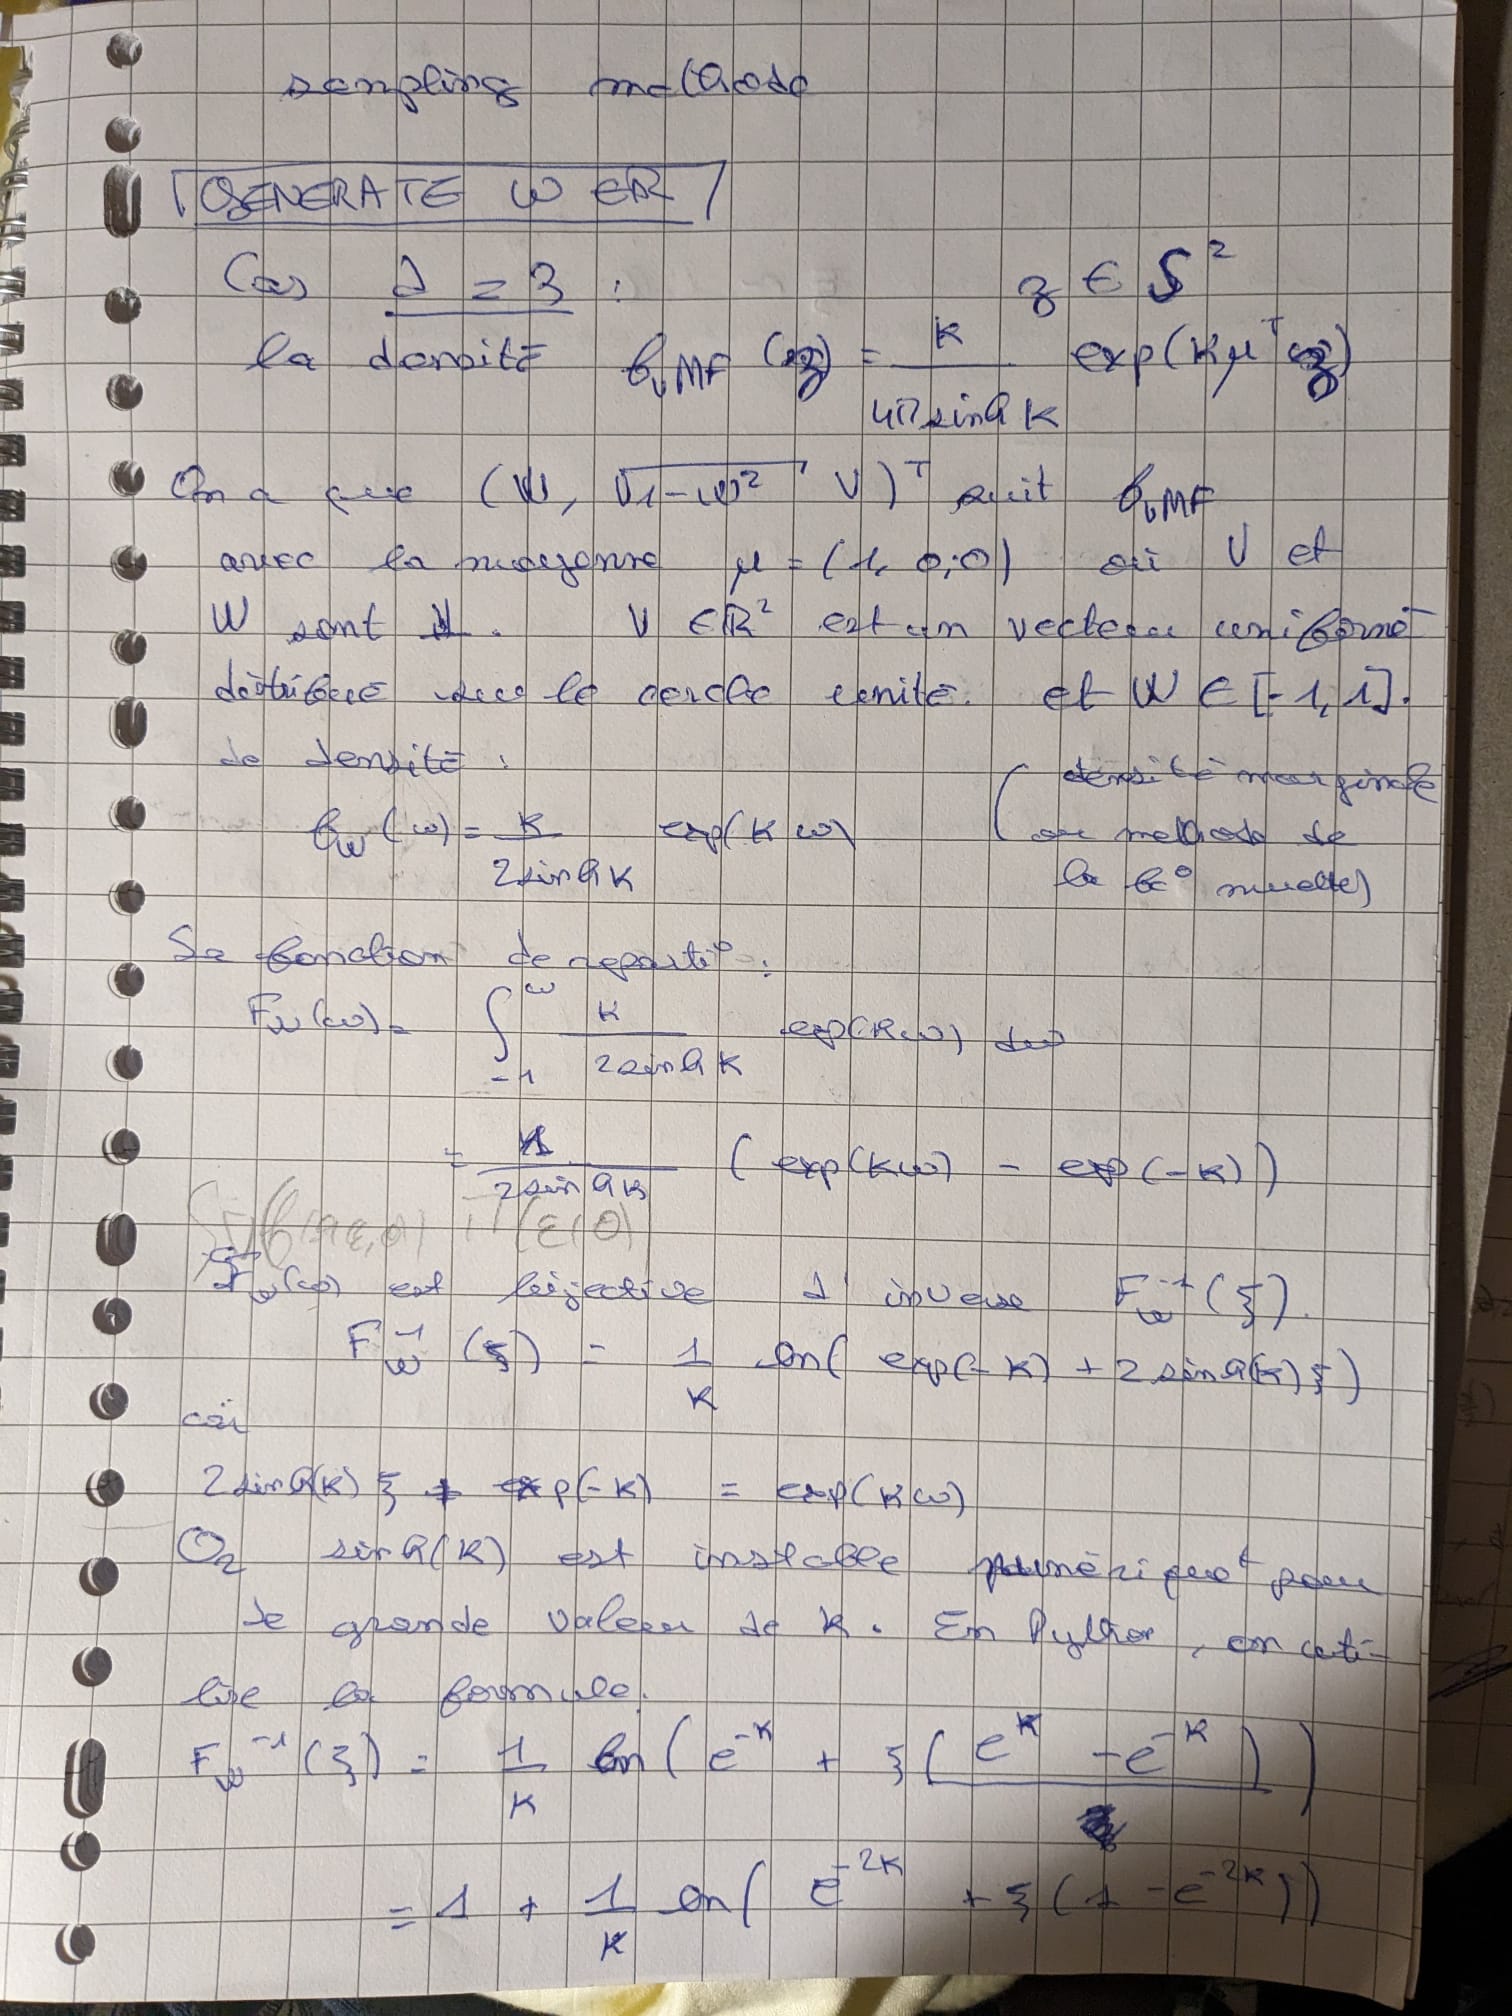 sampling methode
GENERATE W ∈ R
Cas d = 3 : z ∈ S²
la densité f_vMF (z) = κ / (4π sinh κ) exp(κ μᵀ z)
On a que (W, √(1-W²) V)ᵀ suit f_vMF
avec la moyenne μ = (1, 0, 0) où V et
W sont ⊥. V ∈ R² est un vecteur uniformᵗ
distribué sur le cercle unité. et W ∈ [-1, 1].
de densité : (densité marginale
f_W (ω) = κ / (2 sinh κ) exp(κ ω) ou methode de
la fc° muette)
Sa fonction de reparti° :
F_W (ω) = ∫_{-1}^{ω} κ / (2 sinh κ) exp(κ ω) dω
= 1 / (2 sinh κ) (exp(κω) - exp(-κ))
F_W(ω) est bijective d'inverse F_W⁻¹(ξ).
F_W⁻¹ (ξ) = 1/κ ln( exp(-κ) + 2 sinh(κ) ξ )
car
2 sinh(κ) ξ + exp(-κ) = exp(κω)
Or sinh(κ) est instable numériqueᵗ pour
de grande valeur de κ. En Python, on uti-
lise la formule.
F_W⁻¹ (ξ) = 1/κ ln( e^{-κ} + ξ (e^{κ} - e^{-κ}) )
= 1 + 1/κ ln( e^{-2κ} + ξ (1 - e^{-2κ}))